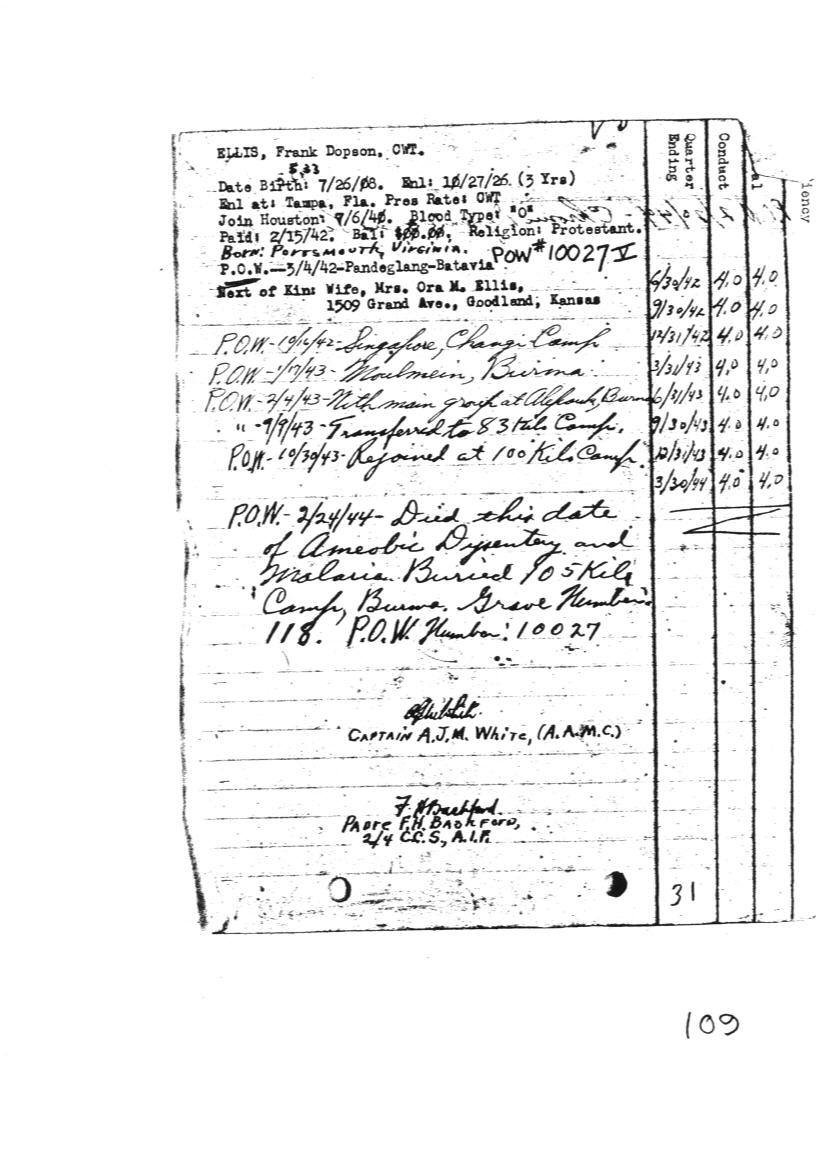 ELLIS, Frank Dopson, CWT.
Date Birth: 7/26/08. Enl: 10/27/26 (3 Yrs)
Enl at: Tampa, Fla. Pres Rate: CWT
Join Houston: 7/6/40. Blood Type: "O"
Paid: 2/15/42. Bal: $00.00. Religion: Protestant.
Born: Portsmouth, Virginia.
POW #10027 V
P.O.W.--3/4/42-Pandeglang-Batavia
Next of Kin: Wife, Mrs. Ora M. Ellis,
1509 Grand Ave., Goodland, Kansas
P.O.W- 10/16/42- Singapore, Changi Camp
P.O.W- 1/17/43- Moulmein, Burma
P.O.W- 2/4/43- With main group at Burma
" -9/9/43- Transferred to 83 Kilo Camp.
P.O.W- 10/30/43- Rejoined at 100 Kilo Camp.
P.O.W.- 2/24/44- Died this date
of Ameobic Dysentery and
Malaria. Buried 105 Kilo
Camp, Burma. Grave Number:
118. P.O.W. Number: 10027
CAPTAIN A.J.M. White, (A.A.M.C.)
F.H. Bashford.
PADRE F.H. BASHFORD,
2/4 C.C.S., A.I.F.
Quarter Ending
Conduct
iency
6/30/42 4.0 4.0
9/30/42 4.0 4.0
12/31/42 4.0 4.0
3/31/43 4.0 4.0
6/31/43 4.0 4.0
9/30/43 4.0 4.0
12/31/43 4.0 4.0
3/30/44 4.0 4.0
31
109